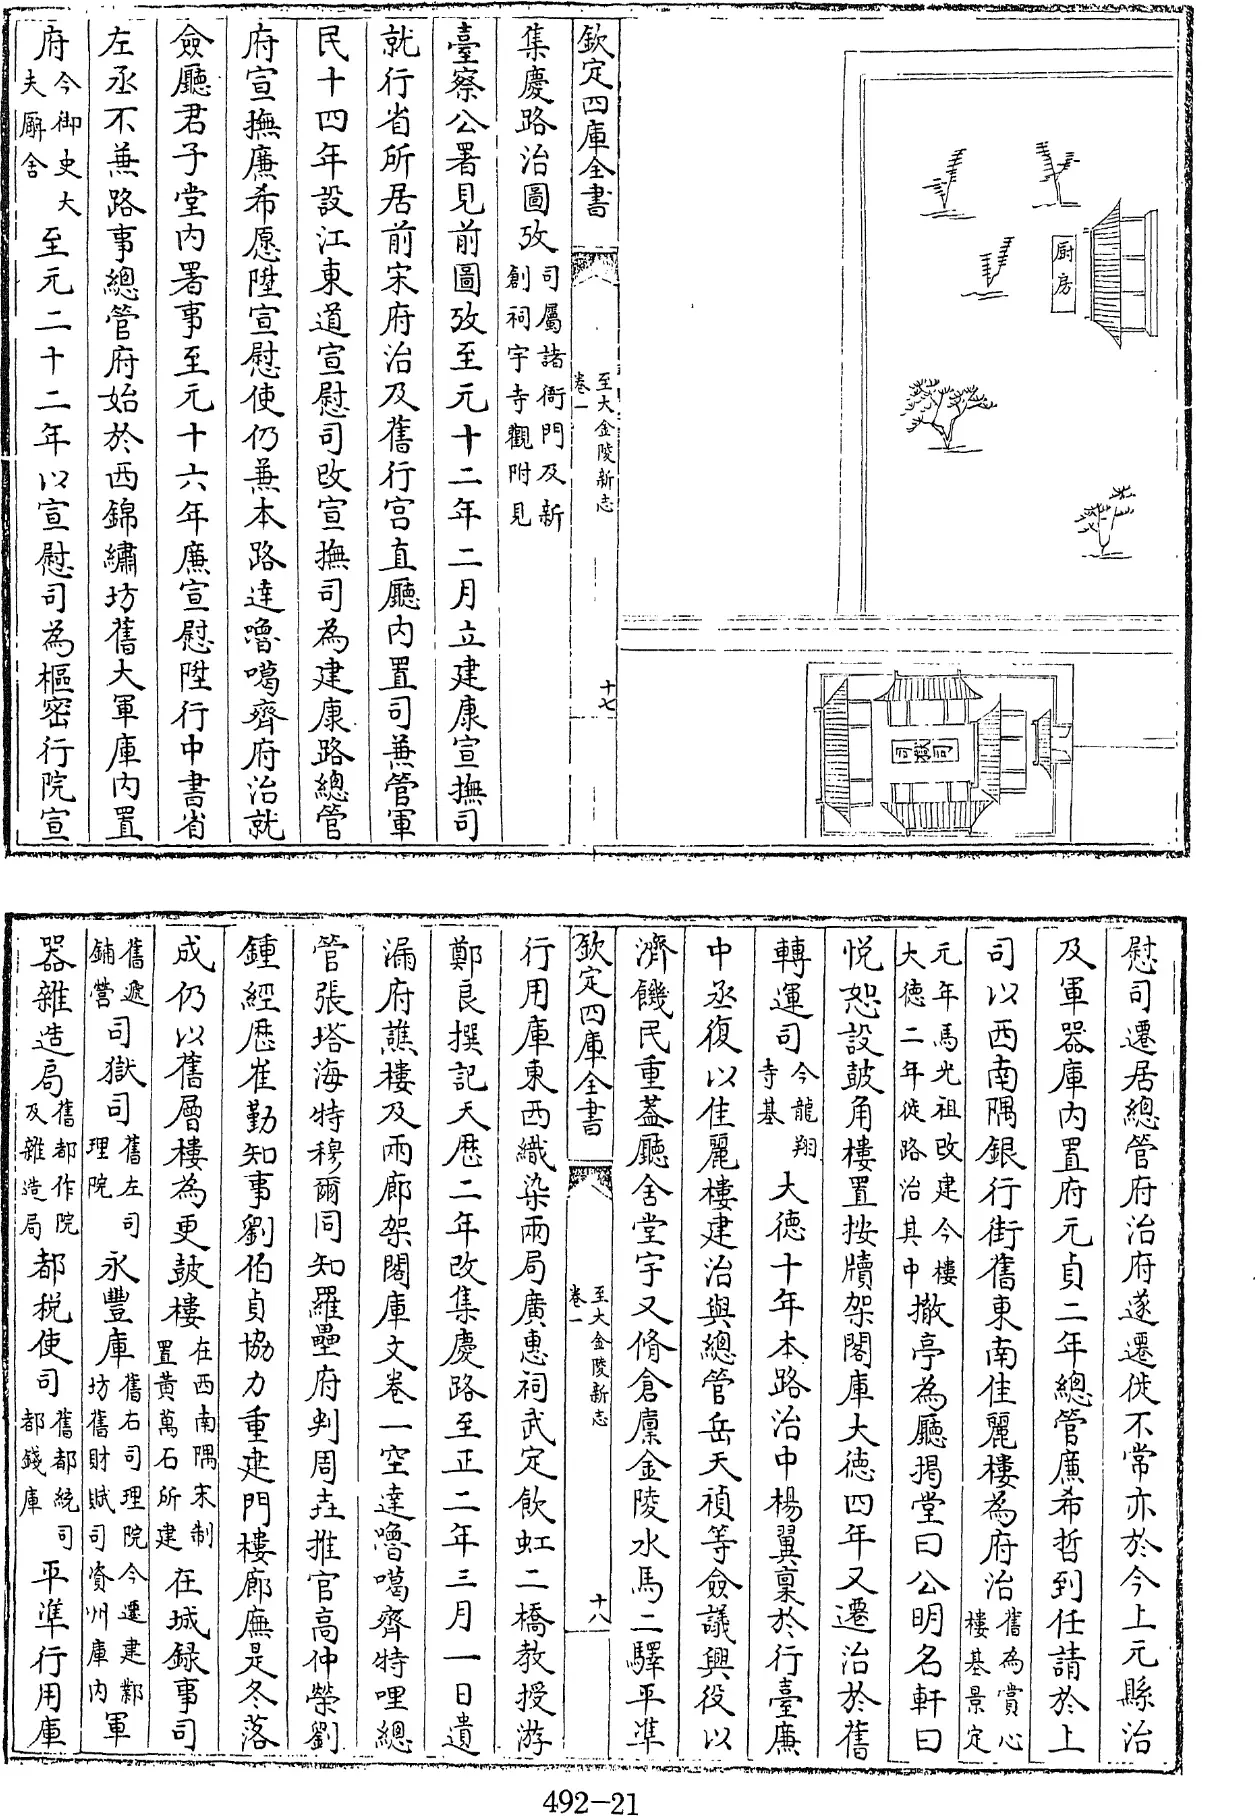 厨房
欽定四庫全書
至大金陵新志
卷一
十七
集慶路治圖攷司屬諸衙門及新創祠宇寺觀附見
臺察公署見前圖攷至元十二年二月立建康宣撫司
就行省所居前宋府治及舊行宫直廳内置司兼管軍
民十四年設江東道宣慰司改宣撫司為建康路總管
府宣撫廉希愿陞宣慰使仍兼本路達嚕噶齊府治就
僉廳君子堂内署事至元十六年廉宣慰陞行中書省
左丞不兼路事總管府始於西錦繡坊舊大軍庫内置
府今御史大夫廨舍至元二十二年以宣慰司為樞密行院宣
慰司遷居總管府治府遂遷徙不常亦於今上元縣治
及軍器庫内置府元貞二年總管廉希哲到任請於上
司以西南隅銀行街舊東南佳麗樓為府治舊為賞心樓基景定
元年馬光祖改建今樓大徳二年徙路治其中撤亭為廳揭堂曰公明名軒曰
悦恕設鼓角樓置按牘架閣庫大徳四年又遷治於舊
轉運司今龍翔寺基大徳十年本路治中楊翼稟於行臺廉
中丞復以佳麗樓建治與總管岳天禎等僉議興役以
濟饑民重葢廳舍堂宇又脩倉廪金陵水馬二驛平準
欽定四庫全書
至大金陵新志
卷一
十八
行用庫東西織染兩局廣惠祠武定飲虹二橋教授游
鄭良撰記天歴二年改集慶路至正二年三月一日遺
漏府譙樓及兩廊架閣庫文卷一空達嚕噶齊特哩總
管張塔海特穆爾同知羅壘府判周壵推官高仲榮劉
鍾經歴崔勤知事劉伯貞協力重建門樓廊廡是冬落
成仍以舊層樓為更鼓樓在西南隅宋制置黄萬石所建在城録事司
舊遞鋪營司獄司舊左司理院永豐庫舊右司理院今遷建鄴坊舊財賦司資州庫内軍
器雜造局舊都作院及雜造局都税使司舊都統司都錢庫平準行用庫
492-21